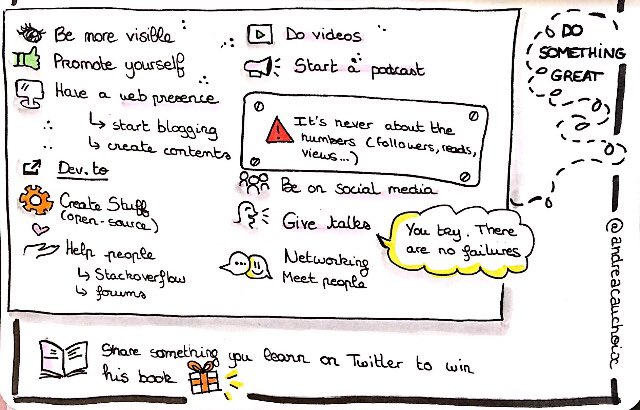 Be more visible
Promote yourself
Have a web presence
↳ start blogging
↳ create contents
Dev.to
Create Stuff
(open-source)
Help people
↳ Stackoverflow
↳ forums
Do videos
Start a podcast
It's never about the
numbers (followers, reads,
views...)
Be on social media
Give talks
You try. There
are no failures
Networking
Meet people
DO
SOMETHING
GREAT
@andreacauchoix
Share something you learn on Twitter to win
his book